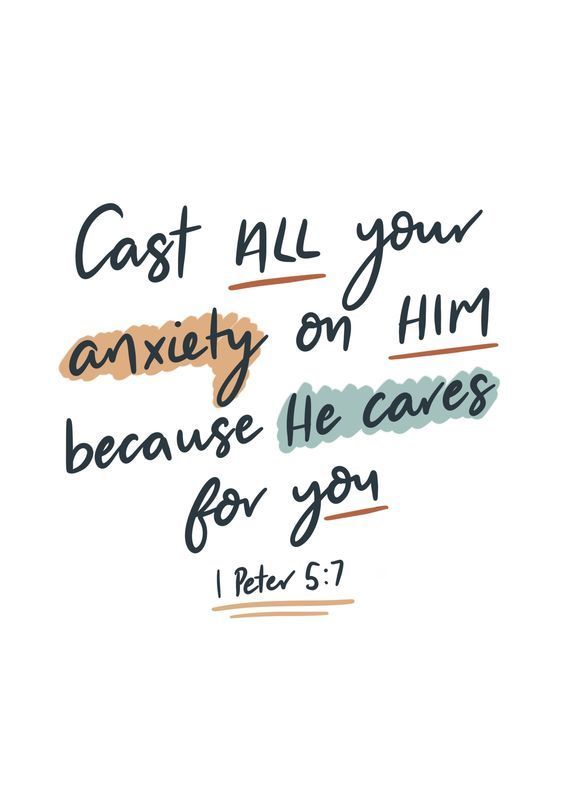 Cast ALL your
anxiety on HIM
because He cares
for you
1 Peter 5:7